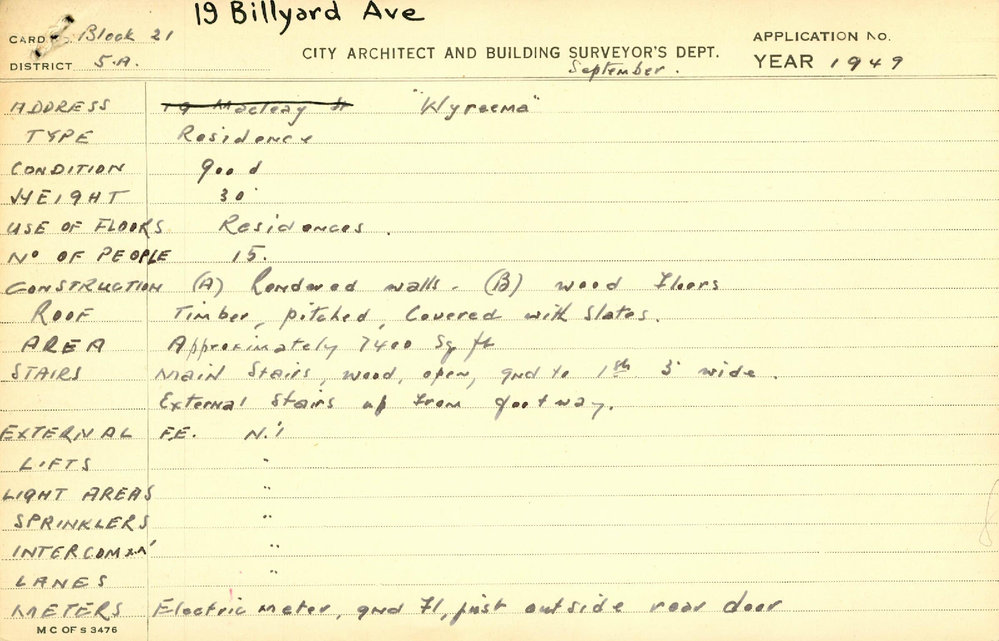 19 Billyard Ave
CARD No. Block 21
APPLICATION No.
CITY ARCHITECT AND BUILDING SURVEYOR'S DEPT.
DISTRICT S.A.
September.
YEAR 1949
ADDRESS 19 Macleay St "Wyreema"
TYPE Residence
CONDITION good
HEIGHT 30'
USE OF FLOORS Residences.
No OF PEOPLE 15.
CONSTRUCTION (A) Rendered walls. (B) wood Floors
ROOF Timber, pitched, Covered with Slates.
AREA Approximately 7400 Sq ft
STAIRS Main Stairs, wood, open, gnd to 1st 3' wide.
External Stairs up from footway.
EXTERNAL F.E. Nil
LIFTS "
LIGHT AREAS "
SPRINKLERS "
INTERCOMMn "
LANES "
METERS Electric meter, gnd Fl, just outside rear door
M C OF S 3476